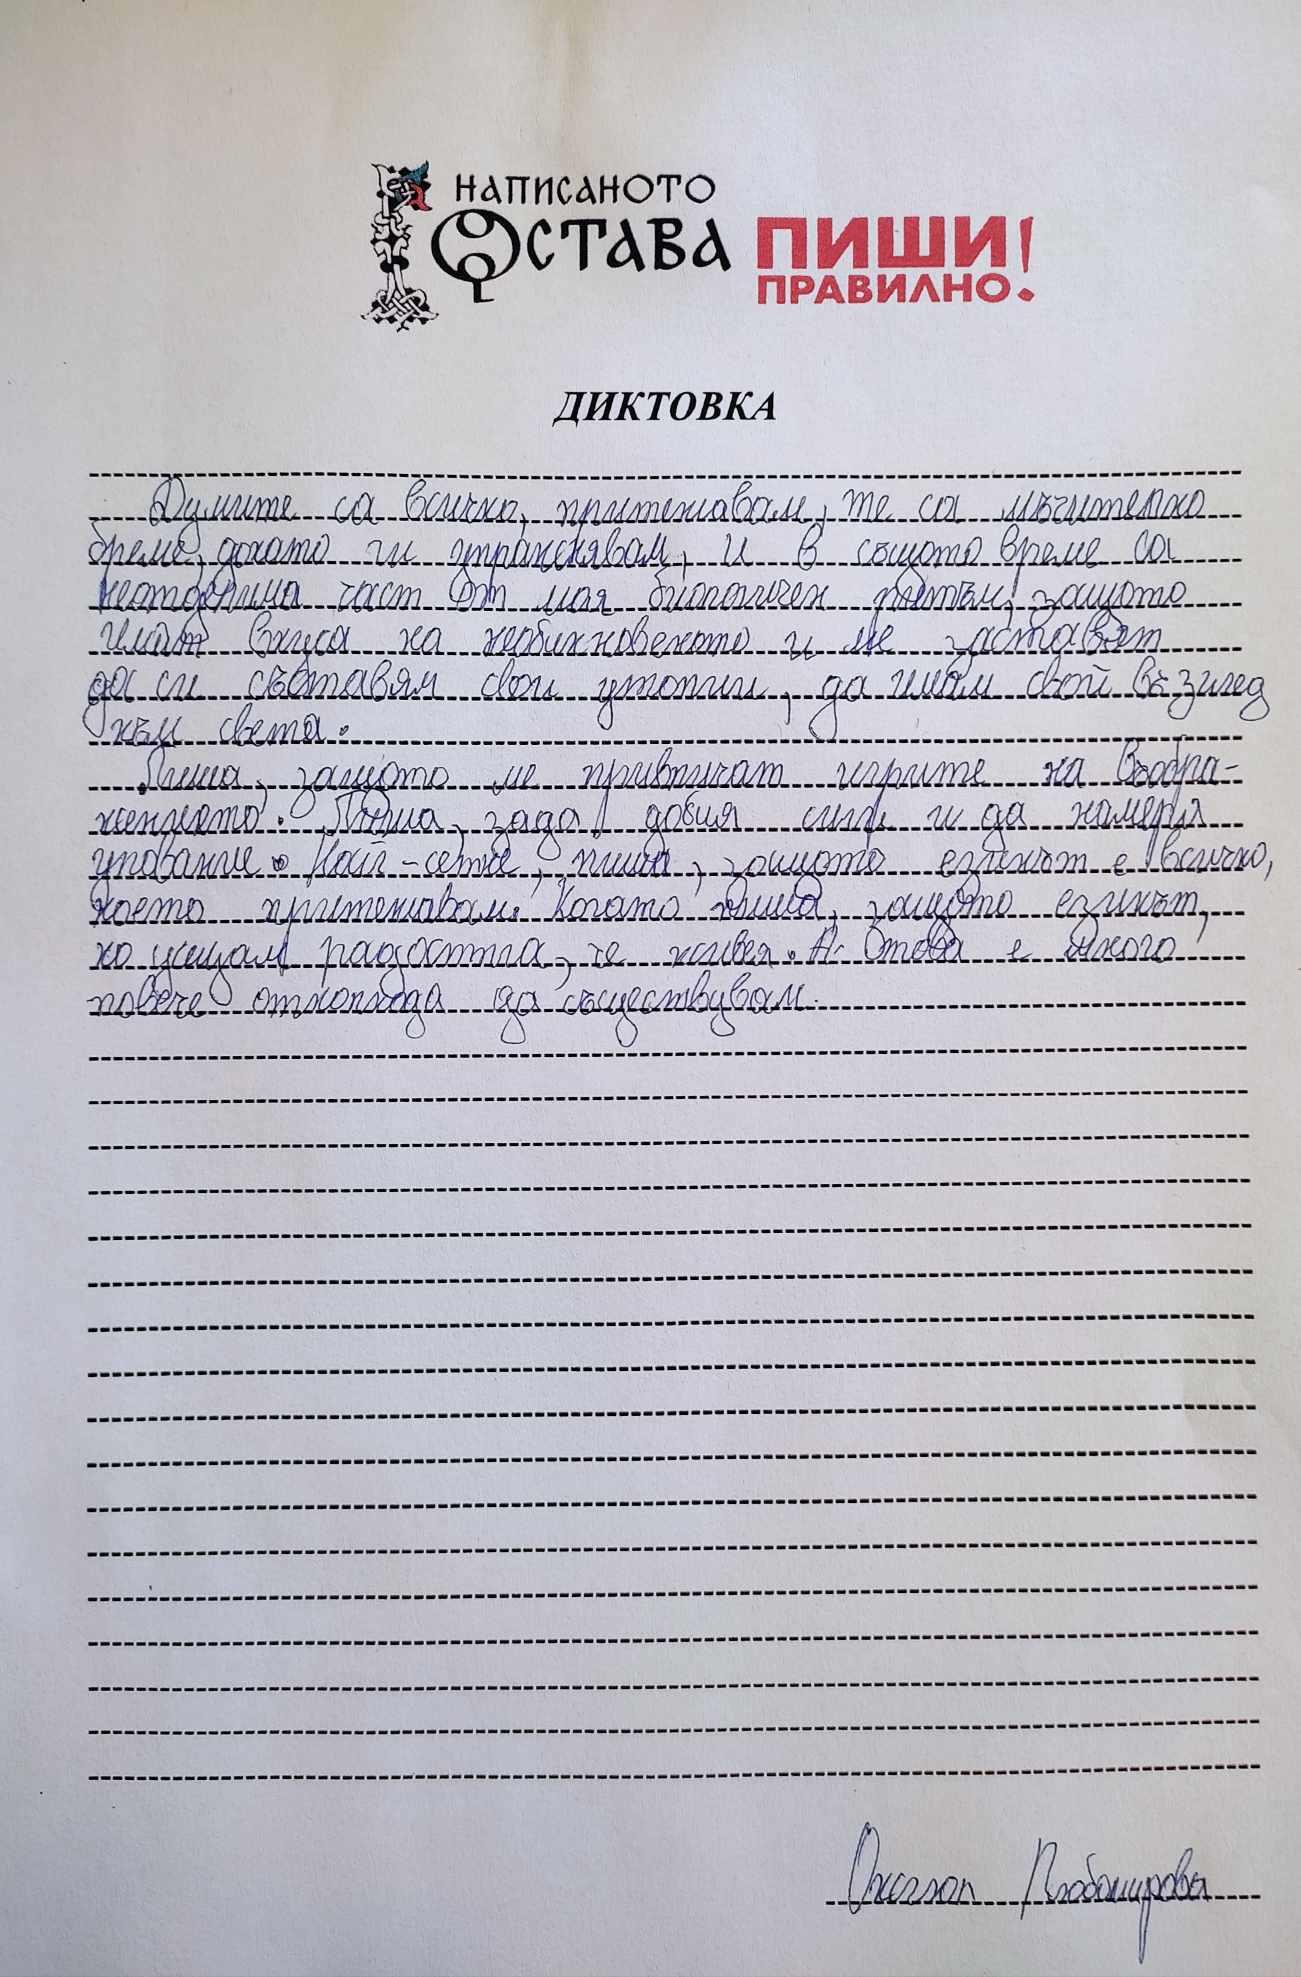 НАПИСАНОТО
ОСТАВА
ПИШИ
ПРАВИЛНО!
ДИКТОВКА
Думите са всичко, притежавам, те са мъчително
бреме, докато ги упражнявам, и в същото време са
неотделима част от моя биологичен ритъм, защото
имат вкуса на необикновеното и ме заставят
да си съставям свои утопии, да имам свой възглед
към света.
Пиша, защото ме привличат игрите на въобра-
жението. Пиша, зада добия сили и да намеря
упование. Най-сетне, пиша, защото езикът е всичко,
което притежавам. Когато пиша, защото езикът,
но усещам радостта, че живея. А това е много
повече отколкода да съществувам.
Любомирова